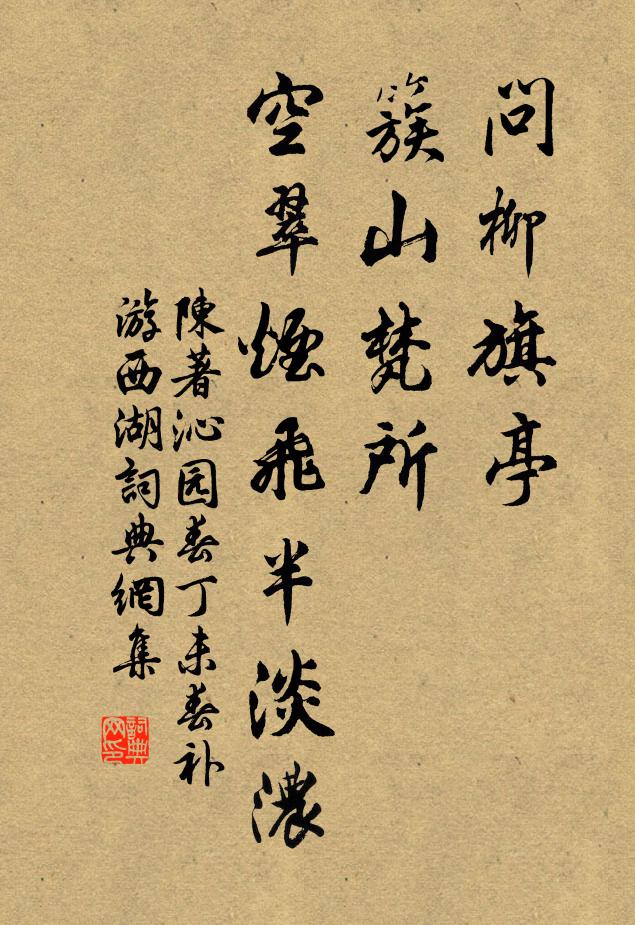 問柳旗亭
簇山梵所
空翠煙飛半淡濃
陳著沁园春丁未春补
游西湖詞典網集
詞典网印